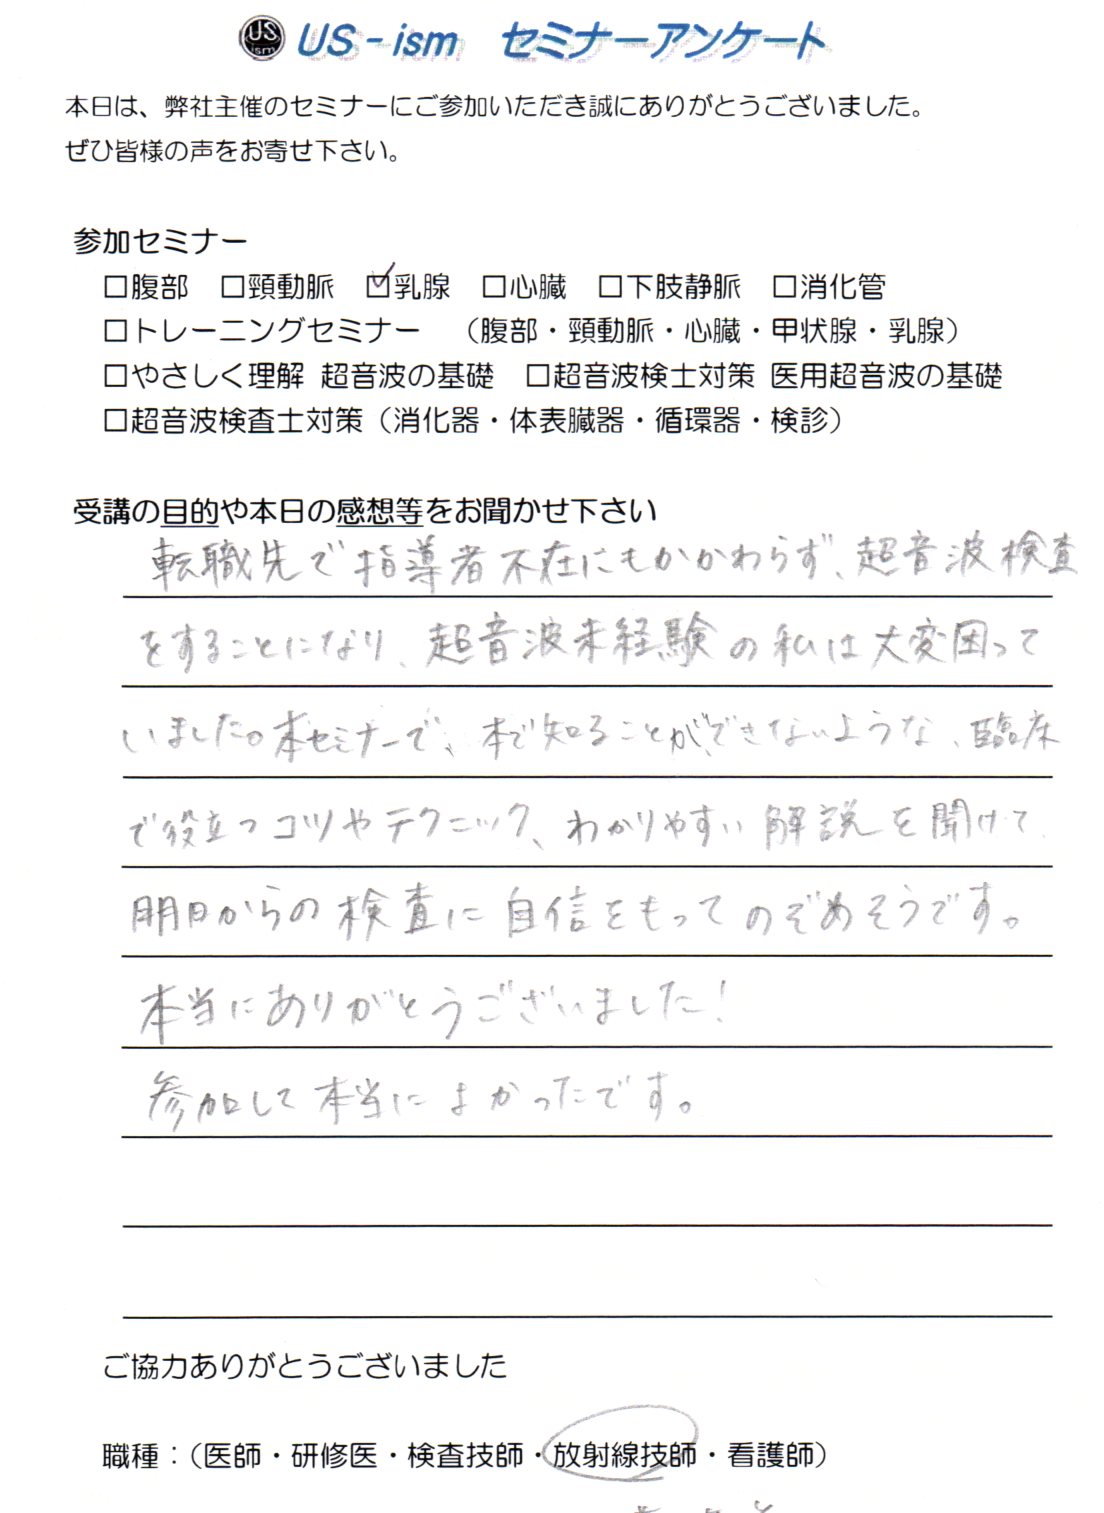 US ism US-ism セミナーアンケート
本日は、弊社主催のセミナーにご参加いただき誠にありがとうございました。
ぜひ皆様の声をお寄せ下さい。
参加セミナー
□腹部 □頸動脈 ☑乳腺 □心臓 □下肢静脈 □消化管
□トレーニングセミナー （腹部・頸動脈・心臓・甲状腺・乳腺）
□やさしく理解 超音波の基礎 □超音波検士対策 医用超音波の基礎
□超音波検査士対策（消化器・体表臓器・循環器・検診）
受講の目的や本日の感想等をお聞かせ下さい
転職先で指導者不在にもかかわらず、超音波検査
をすることになり、超音波未経験の私は大変困って
いました。本セミナーで、本で知ることができないような、臨床
で役立つコツやテクニック、わかりやすい解説を聞けて
明日からの検査に自信をもってのぞめそうです。
本当にありがとうございました！
参加して本当によかったです。
ご協力ありがとうございました
職種：（医師・研修医・検査技師・放射線技師・看護師）